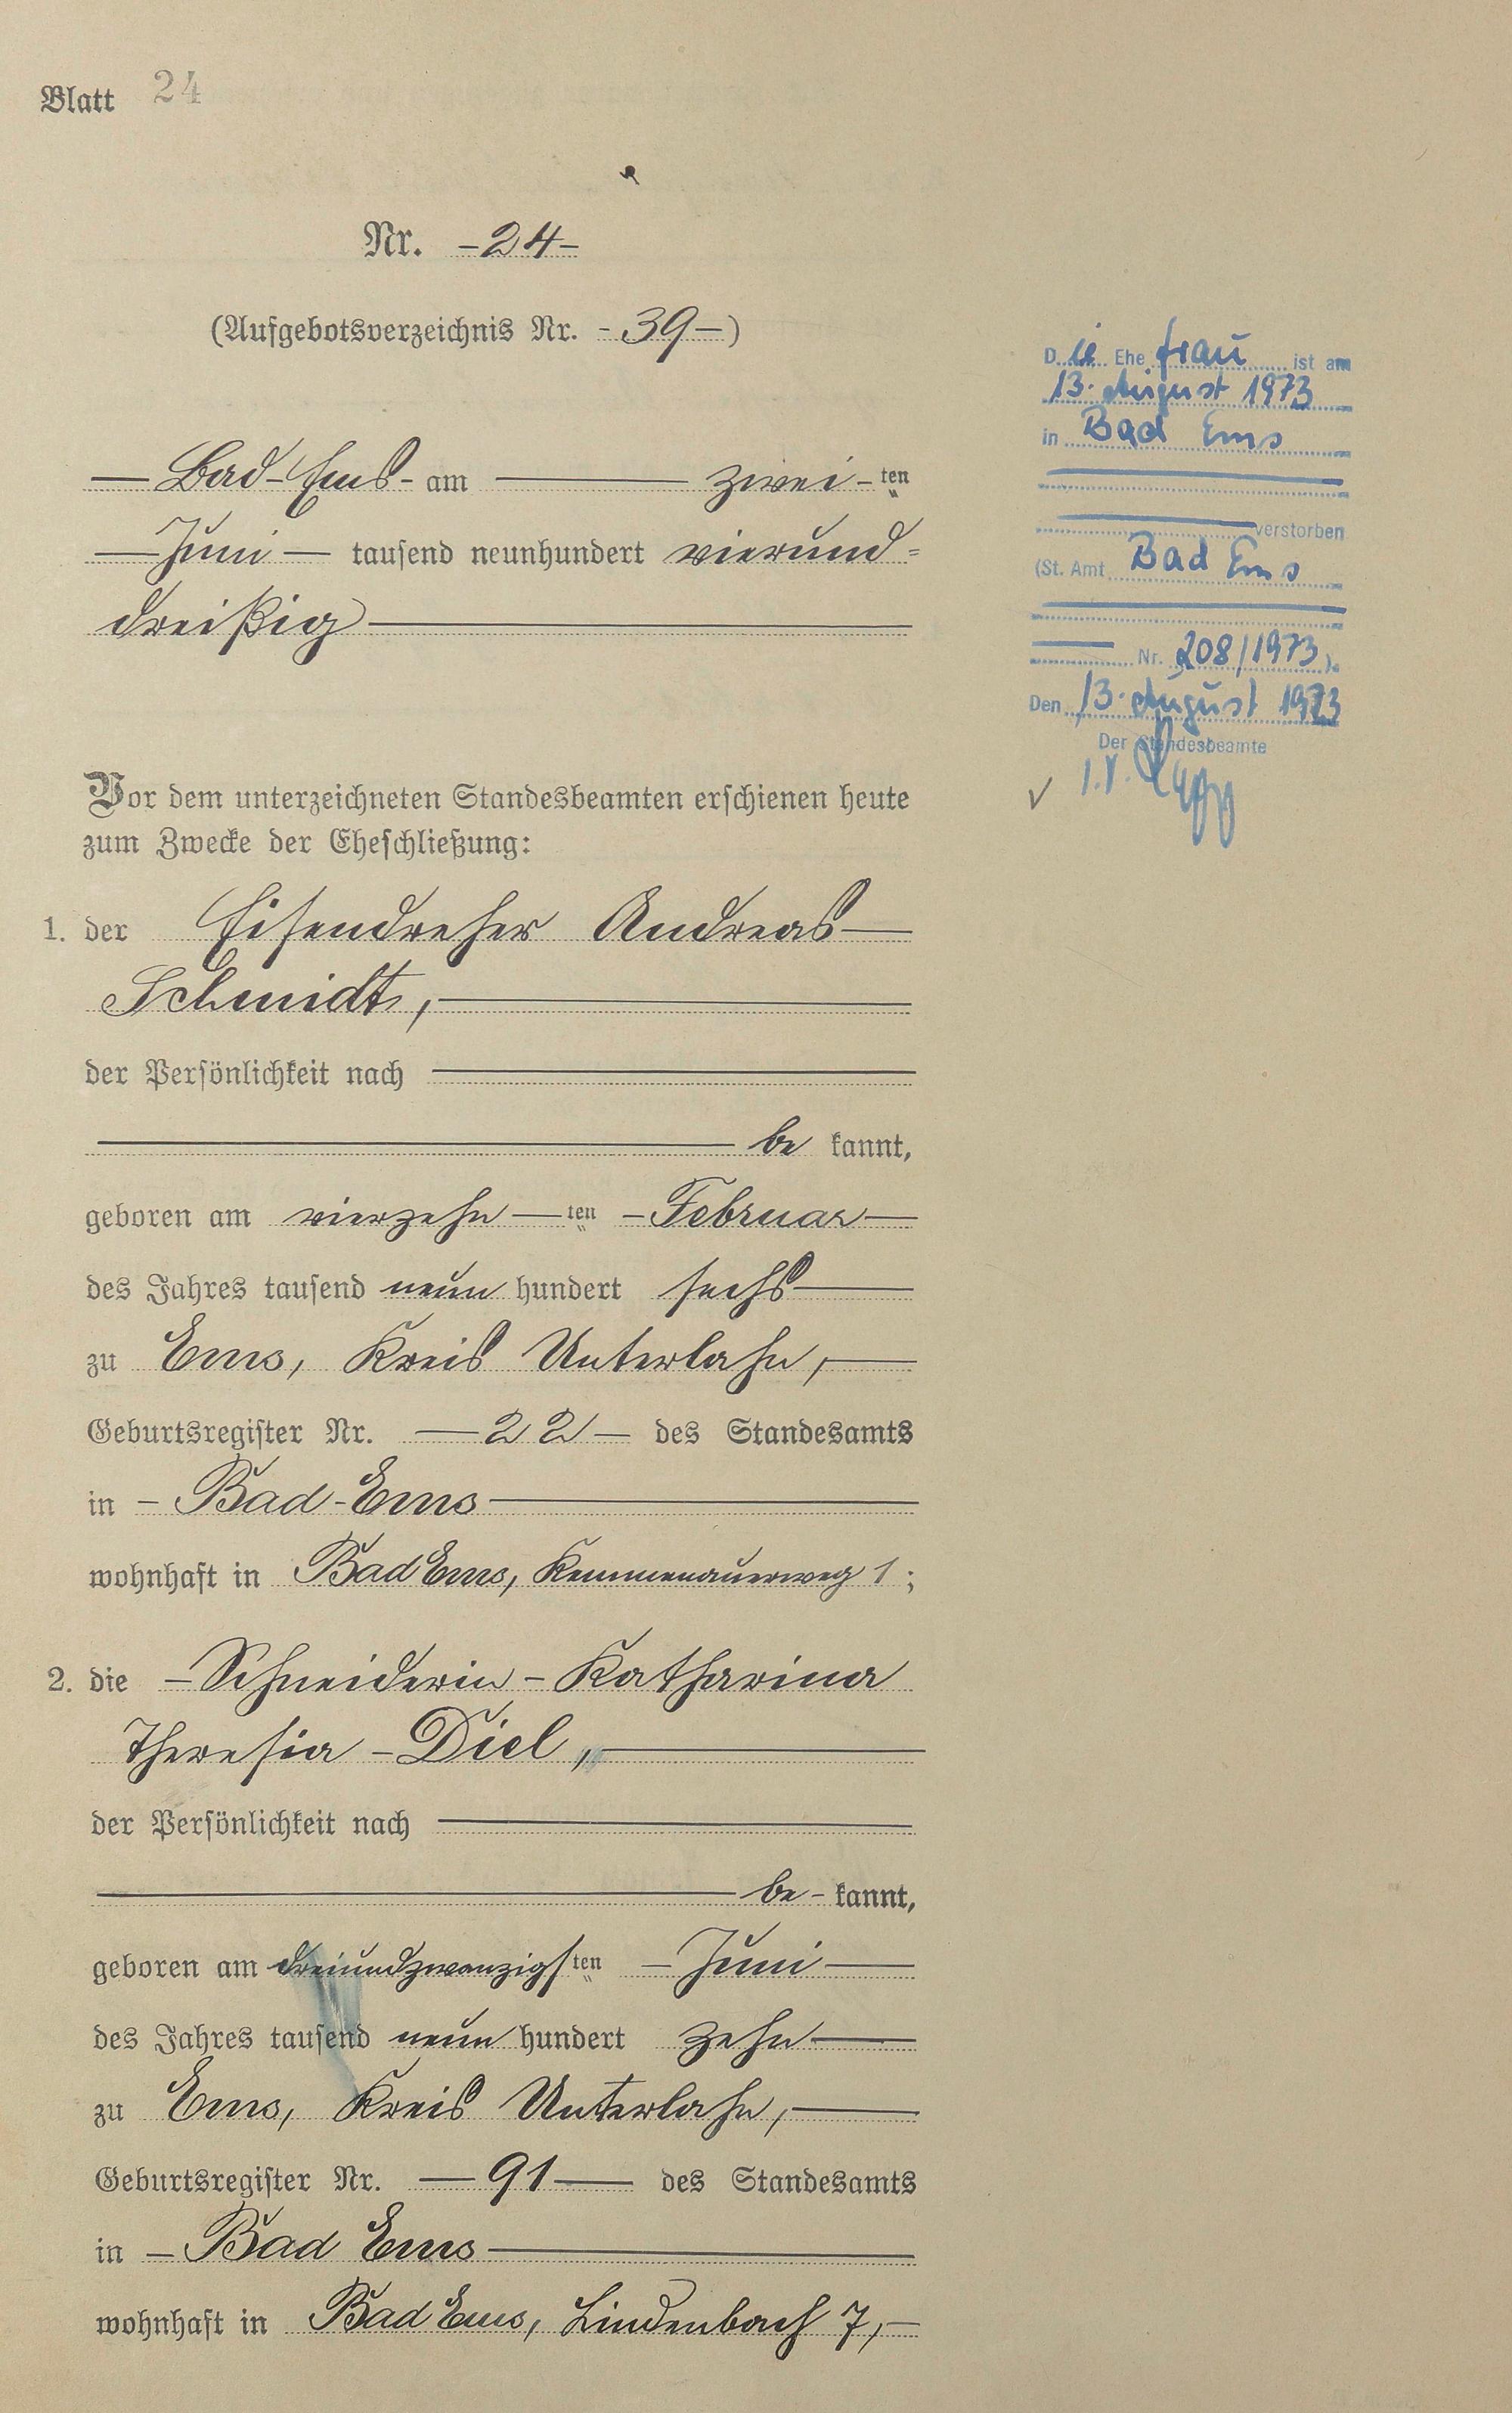 Blatt 24
Nr. -24-
(Aufgebotsverzeichnis Nr. -39-)
Bad-Ems- am zwei-ten
Juni tausend neunhundert vierund-
dreißig
Vor dem unterzeichneten Standesbeamten erschienen heute
zum Zwecke der Eheschließung:
1. der Eisendreher Andreas
Schmidt,
der Persönlichkeit nach
be kannt,
geboren am vierzehn ten Februar
des Jahres tausend neun hundert sechs
zu Ems, Kreis Unterlahn,
Geburtsregister Nr. 22 des Standesamts
in Bad-Ems
wohnhaft in Bad Ems, Kemmenauerweg 1;
2. die Schneiderin Katharina
Theresia Diel,
der Persönlichkeit nach
be- kannt,
geboren am dreiundzwanzigsten Juni
des Jahres tausend neun hundert zehn
zu Ems, Kreis Unterlahn,
Geburtsregister Nr. 91 des Standesamts
in Bad Ems
wohnhaft in Bad Ems, Lindenbach 7,
Die Ehefrau ist am
13. August 1973
in Bad Ems
verstorben
(St. Amt Bad Ems
Nr. 208/1973).
Den 13. August 1973
Der Standesbeamte
I.V.